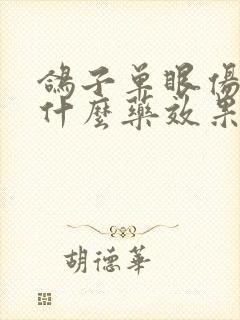 鴿子单眼傷
什麼藥效果
胡德華